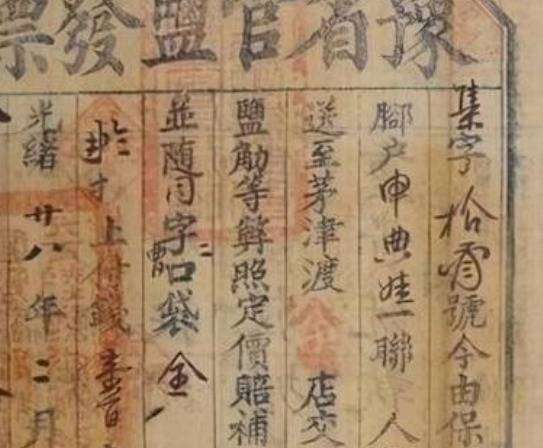 豫省官鹽發票
集字拾號今由保
腳户申典娃一聯人
送至茅津渡 店交
鹽觔等觧照定價賠補
並随字口袋全
上付錢壹百
光緒廿八年二月